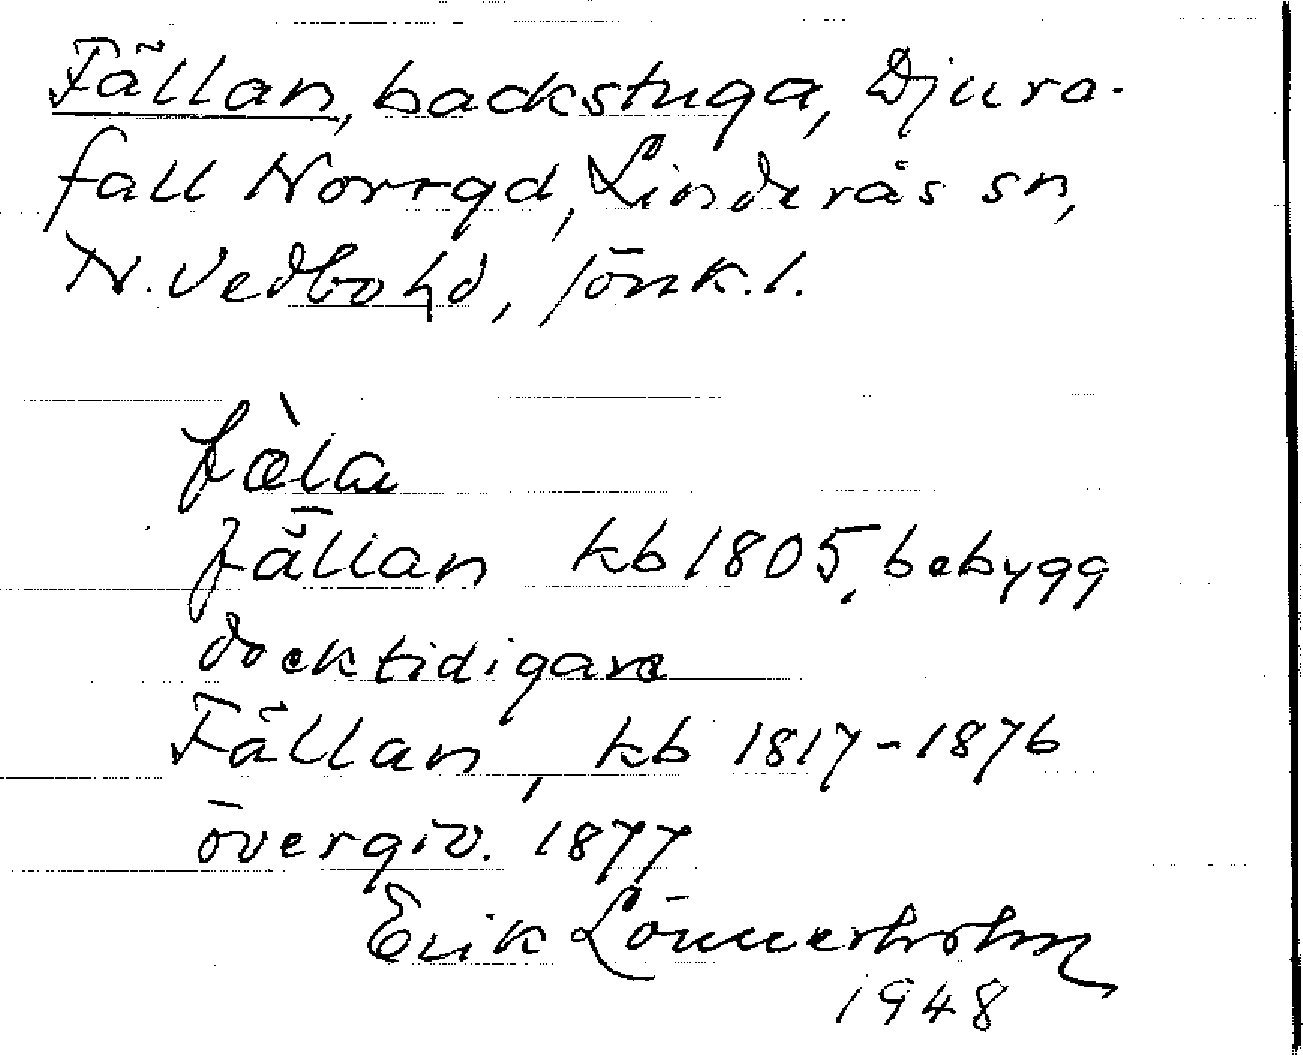 Fällan, backstuga, Djura-
fall Norrgd, Linderås sn,
N. Vedbo hd, Jönk. l.
fæ̀la
fällan kb 1805, bebygg
dock tidigare
Fällan, kb 1817-1876
övergiv. 1877
Erik Lönnerholm
1948